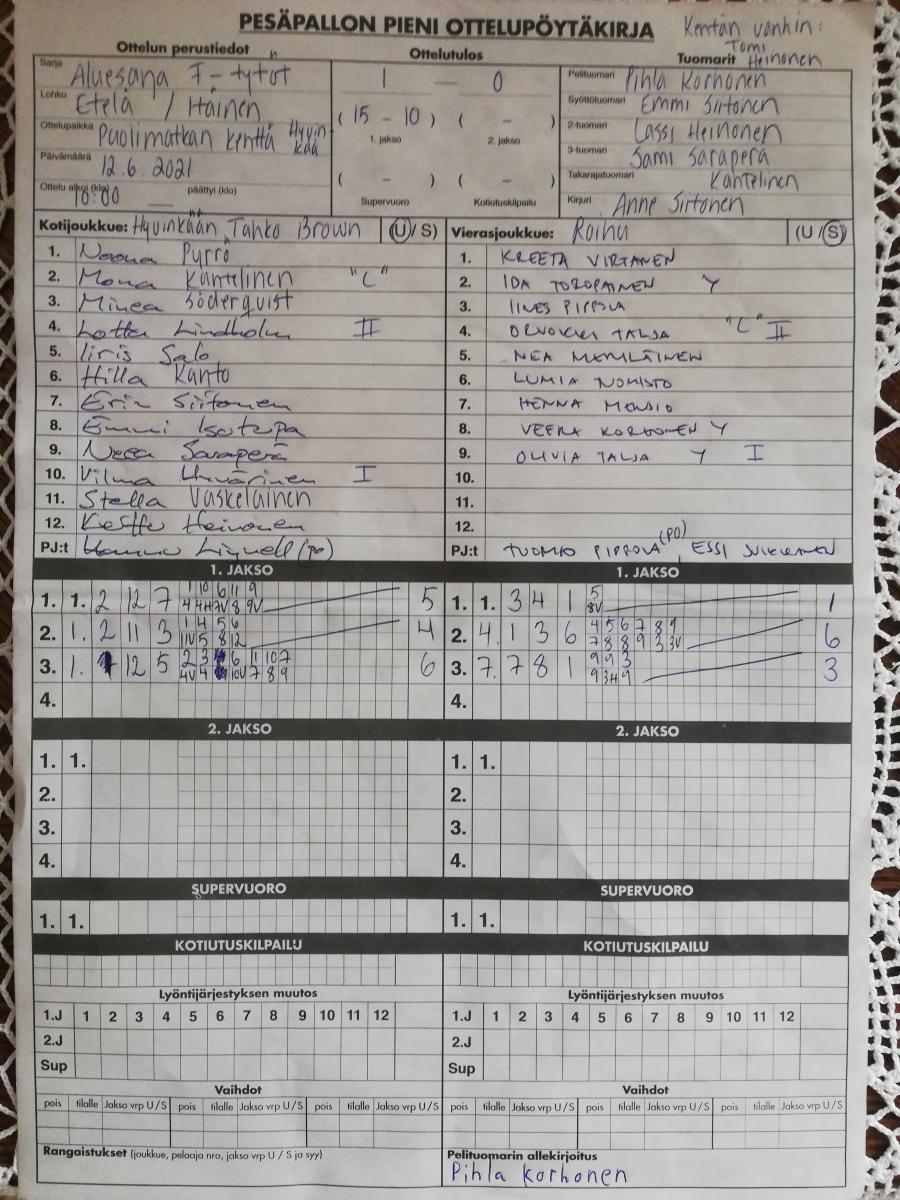 PESÄPALLON PIENI OTTELUPÖYTÄKIRJA
Kentän vanhin:
Tomi Heinonen
Ottelun perustiedot
Ottelutulos
Tuomarit
Sarja Aluesarja F-tytöt
Lohko Etelä / Itäinen
Ottelupaikka Puolimatkan kenttä Hyvinkää
Päivämäärä 12.6.2021
Ottelu alkoi (klo) 10:00 päättyi (klo)
1 — 0
( 15 - 10 ) ( - )
1. jakso 2. jakso
( - ) ( - )
Supervuoro Kotiutuskilpailu
Pelituomari Pihla Korhonen
Syöttötuomari Emmi Siitonen
2-tuomari Lassi Heinonen
3-tuomari Sami Saraperä
Takarajatuomari Kantelinen
Kirjuri Anne Siitonen
Kotijoukkue: Hyvinkään Tahko Brown (U/S)
1. Noona Pyrrö
2. Mona Kantelinen "C"
3. Minea Söderquist
4. Lotta Lindholm II
5. Iiris Salo
6. Hilla Kanto
7. Erin Siitonen
8. Emmi
9. Neea Saraperä
10. Vilma I
11. Stella Vaskelainen
12. Heinonen
PJ:t Hannu Lignell (PO)
Vierasjoukkue: Roihu (U/S)
1. KREETA VIRTANEN
2. IDA TOROPAINEN Y
3. IINES PIPPOLA
4. ORVOKKI TALJA "C" II
5. NEA
6. LUMIA NOMISTO
7. HENNA
8. VEERA KORHONEN Y
9. OLIVIA TALJA Y I
10.
11.
12.
PJ:t TUOMO PIPPOLA (PO), ESSI
1. JAKSO
1. 1. 2 12 7 1 10 6 11 9 5
4 4H 7V 8 9V
2. 1. 2 11 3 1 4 5 6 4
11V 5 8 12
3. 1. 12 5 2 3 6 11 10 7 6
4V 4 10V 7 8 9
4.
1. JAKSO
1. 1. 3 4 1 5 1
8V
2. 4. 1 3 6 4 5 6 7 8 9 6
7 8 8 9 3 3V
3. 7. 7 8 1 9 9 3 3
9 3H 9
4.
2. JAKSO
1. 1.
2.
3.
4.
2. JAKSO
1. 1.
2.
3.
4.
SUPERVUORO
1. 1.
SUPERVUORO
1. 1.
KOTIUTUSKILPAILU
KOTIUTUSKILPAILU
Lyöntijärjestyksen muutos
1.J 1 2 3 4 5 6 7 8 9 10 11 12
2.J
Sup
Lyöntijärjestyksen muutos
1.J 1 2 3 4 5 6 7 8 9 10 11 12
2.J
Sup
Vaihdot
pois tilalle Jakso vrp U/S pois tilalle Jakso vrp U/S pois tilalle Jakso vrp U/S
Vaihdot
pois tilalle Jakso vrp U/S pois tilalle Jakso vrp U/S pois tilalle Jakso vrp U/S
Rangaistukset (joukkue, pelaaja nro, jakso vrp U / S ja syy)
Pelituomarin allekirjoitus
Pihla Korhonen